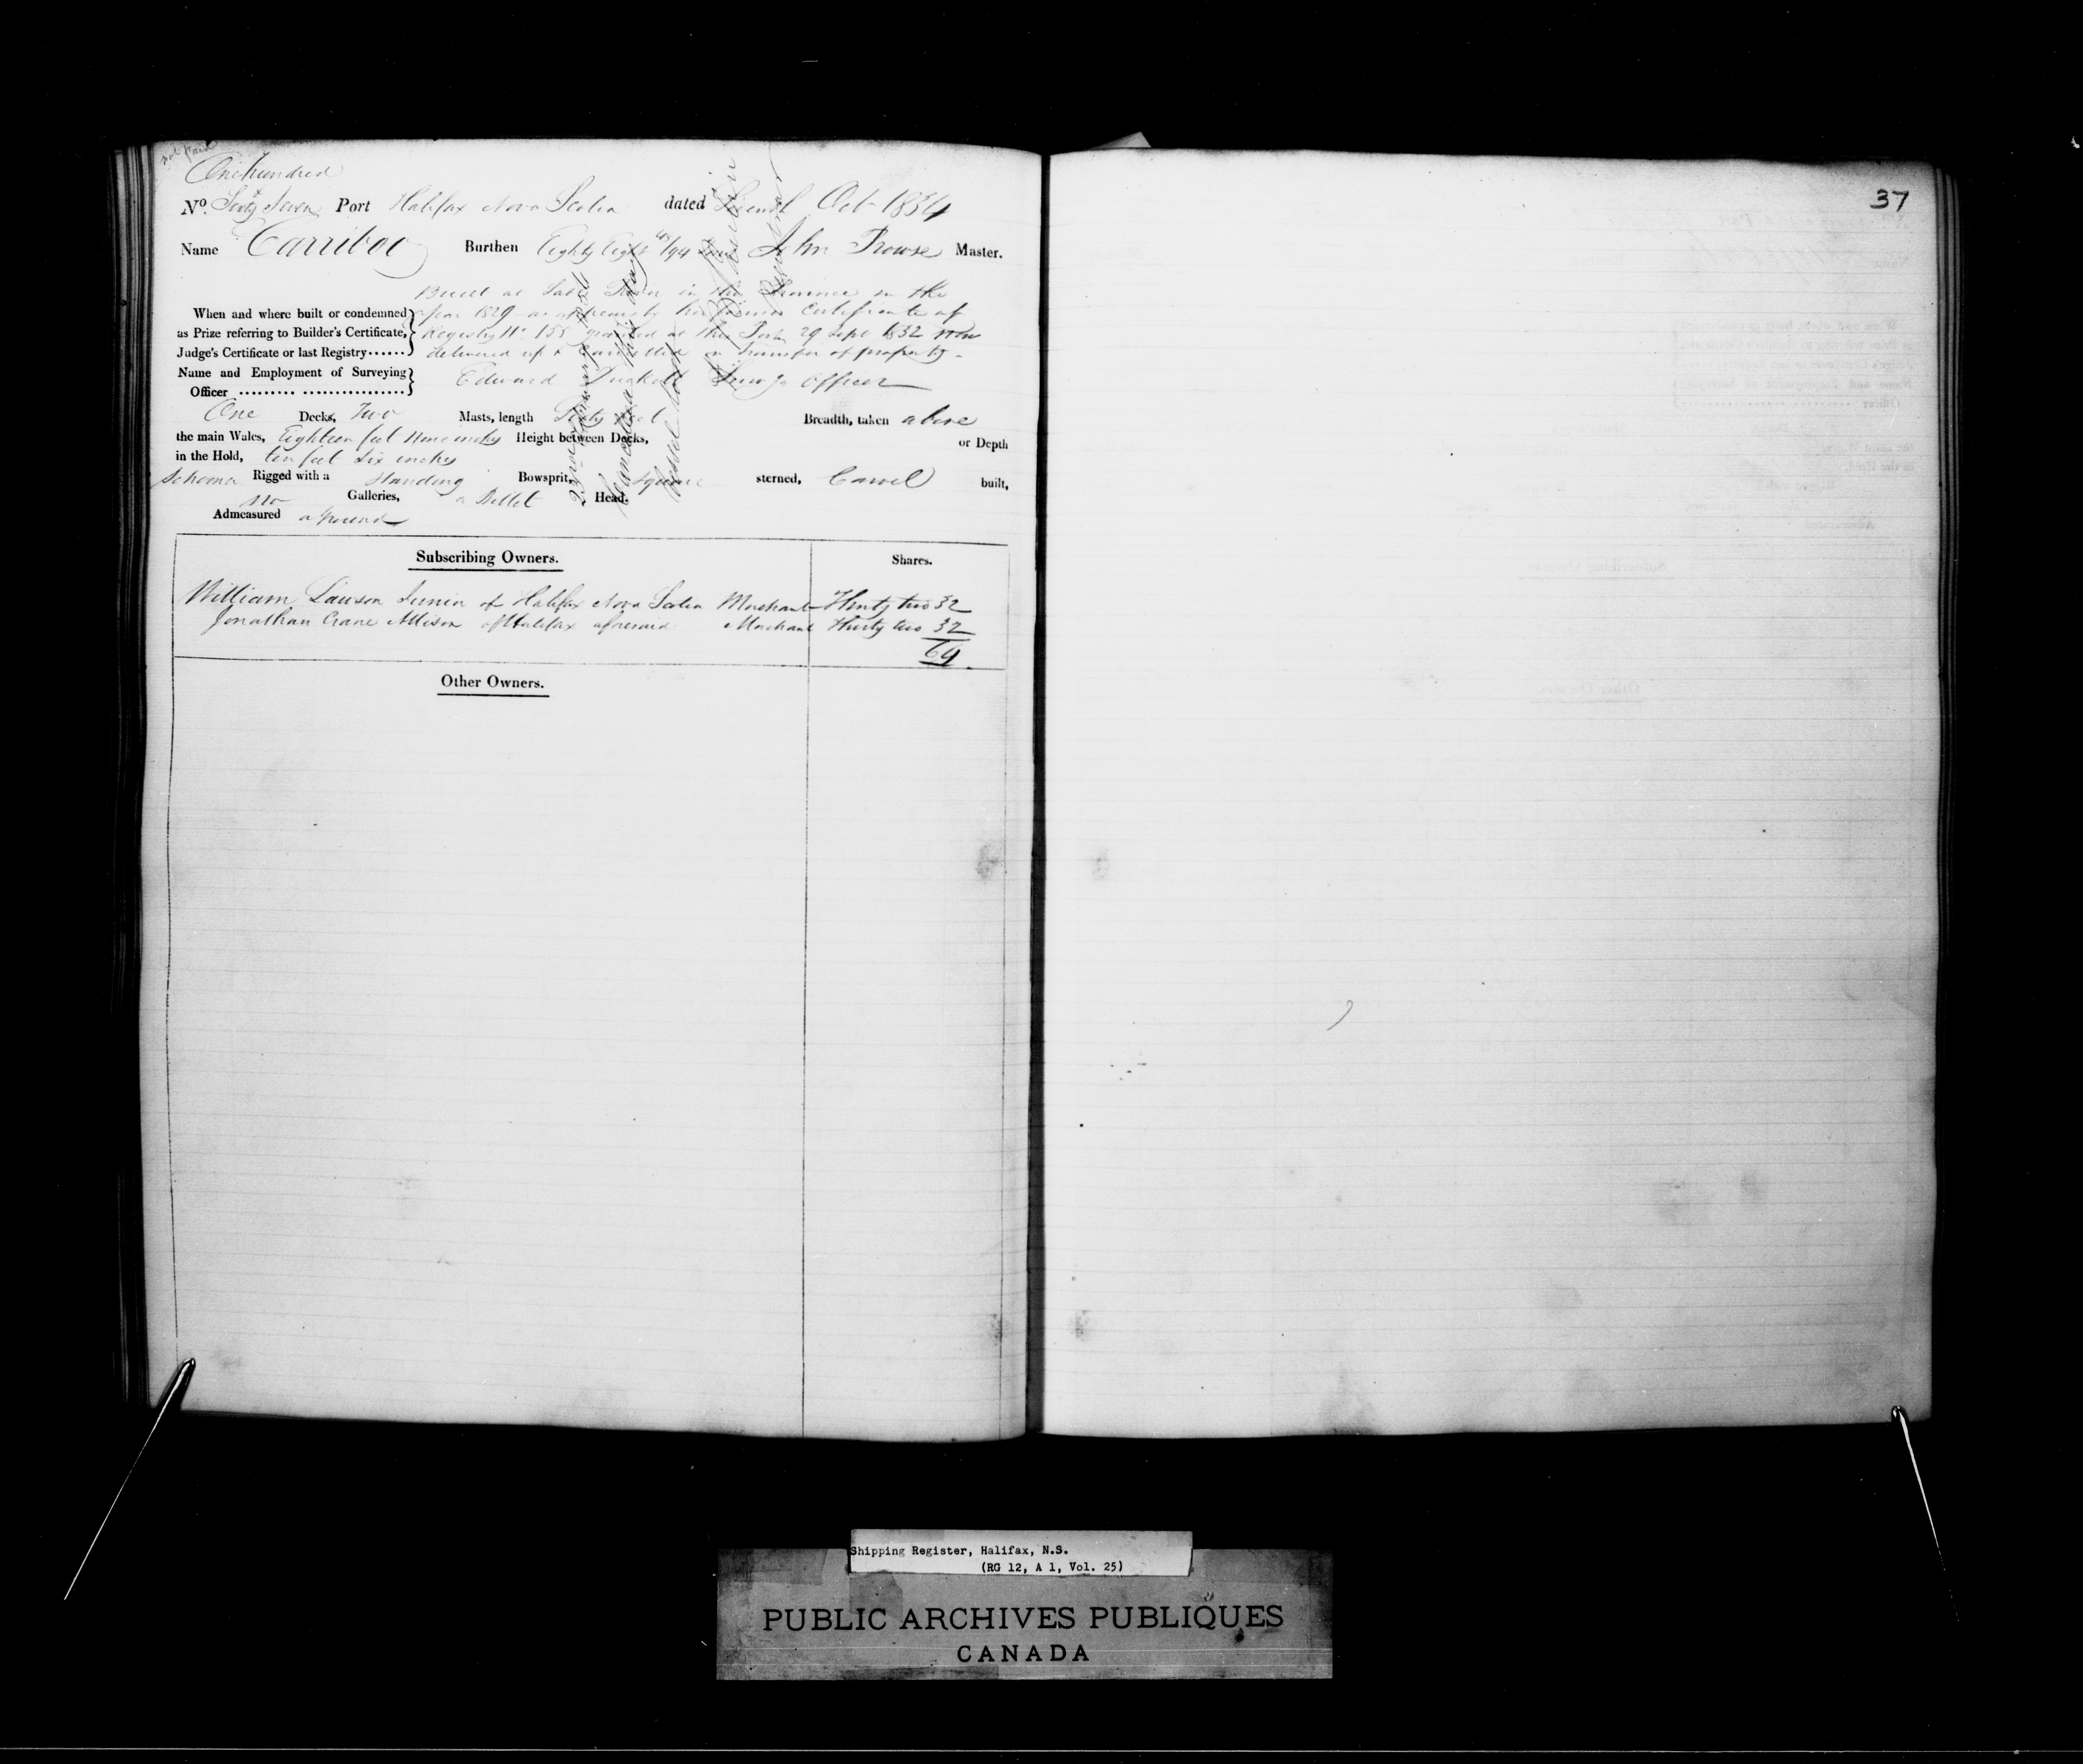 not paid
One hundred
No. Sixty Seven Port Halifax Nova Scotia dated Oct 1834
Name Carriboo Burthen Eighty Eight /94 Tons John Prowse Master.
Built at River in this Province in the
When and where built or condemned year 1829 as appears by her former Certificate of
as Prize referring to Builder's Certificate, Registry No 155 granted at this Port 29 Sept 1832 now
Judge's Certificate or last Registry...... delivered up & Cancelled on Transfer of property.
Name and Employment of Surveying
Officer Edward Surveying Officer
One Decks, Two Masts, length Sixty feet Breadth, taken above
the main Wales, Eighteen feet Nine inches Height between Decks, or Depth
in the Hold, ten feet Six inches
Schooner Rigged with a Standing Bowsprit, Square sterned, Carvel built,
no Galleries, a Billet Head.
Admeasured aground
Cancelled
Vessel
Subscribing Owners. Shares.
William Lawson Junior of Halifax Nova Scotia Merchant Thirty two 32
Jonathan Crane Allison of Halifax aforesaid Merchant Thirty two 32
64
Other Owners.
37
Shipping Register, Halifax, N.S.
(RG 12, A 1, Vol. 25)
PUBLIC ARCHIVES PUBLIQUES
CANADA